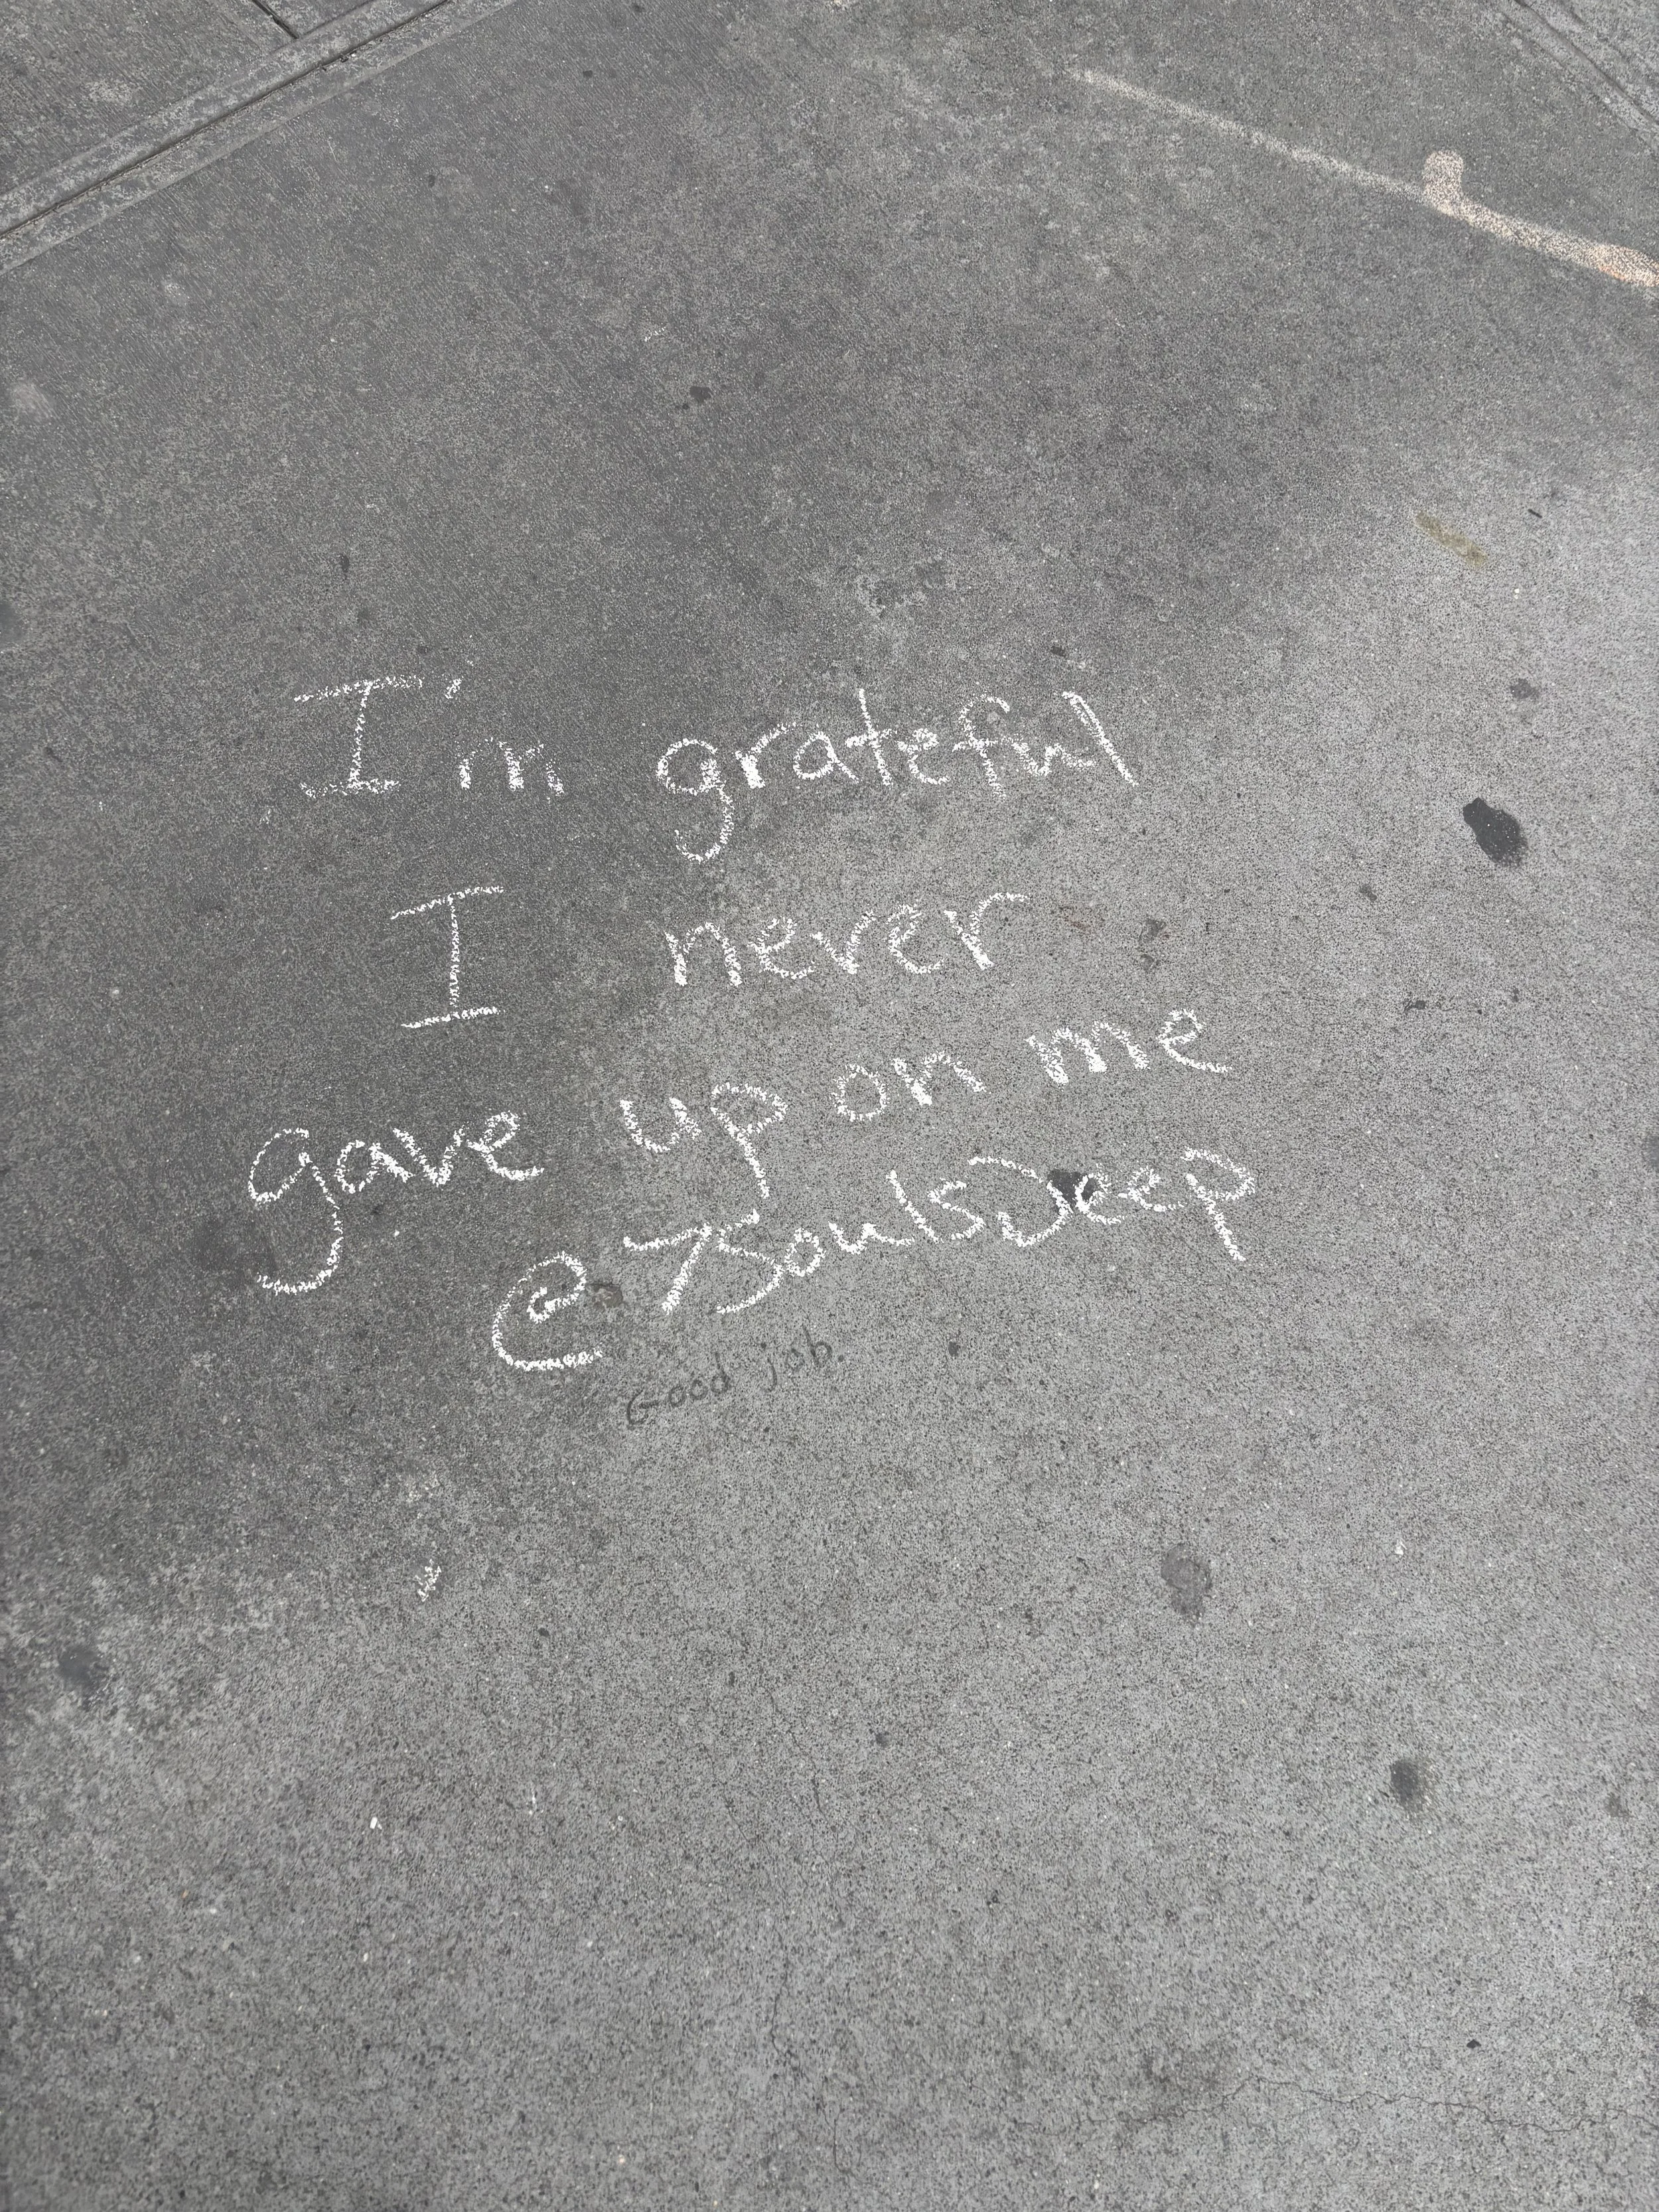 I'm grateful
I never
gave up on me
@7SoulsDeep
Good job.